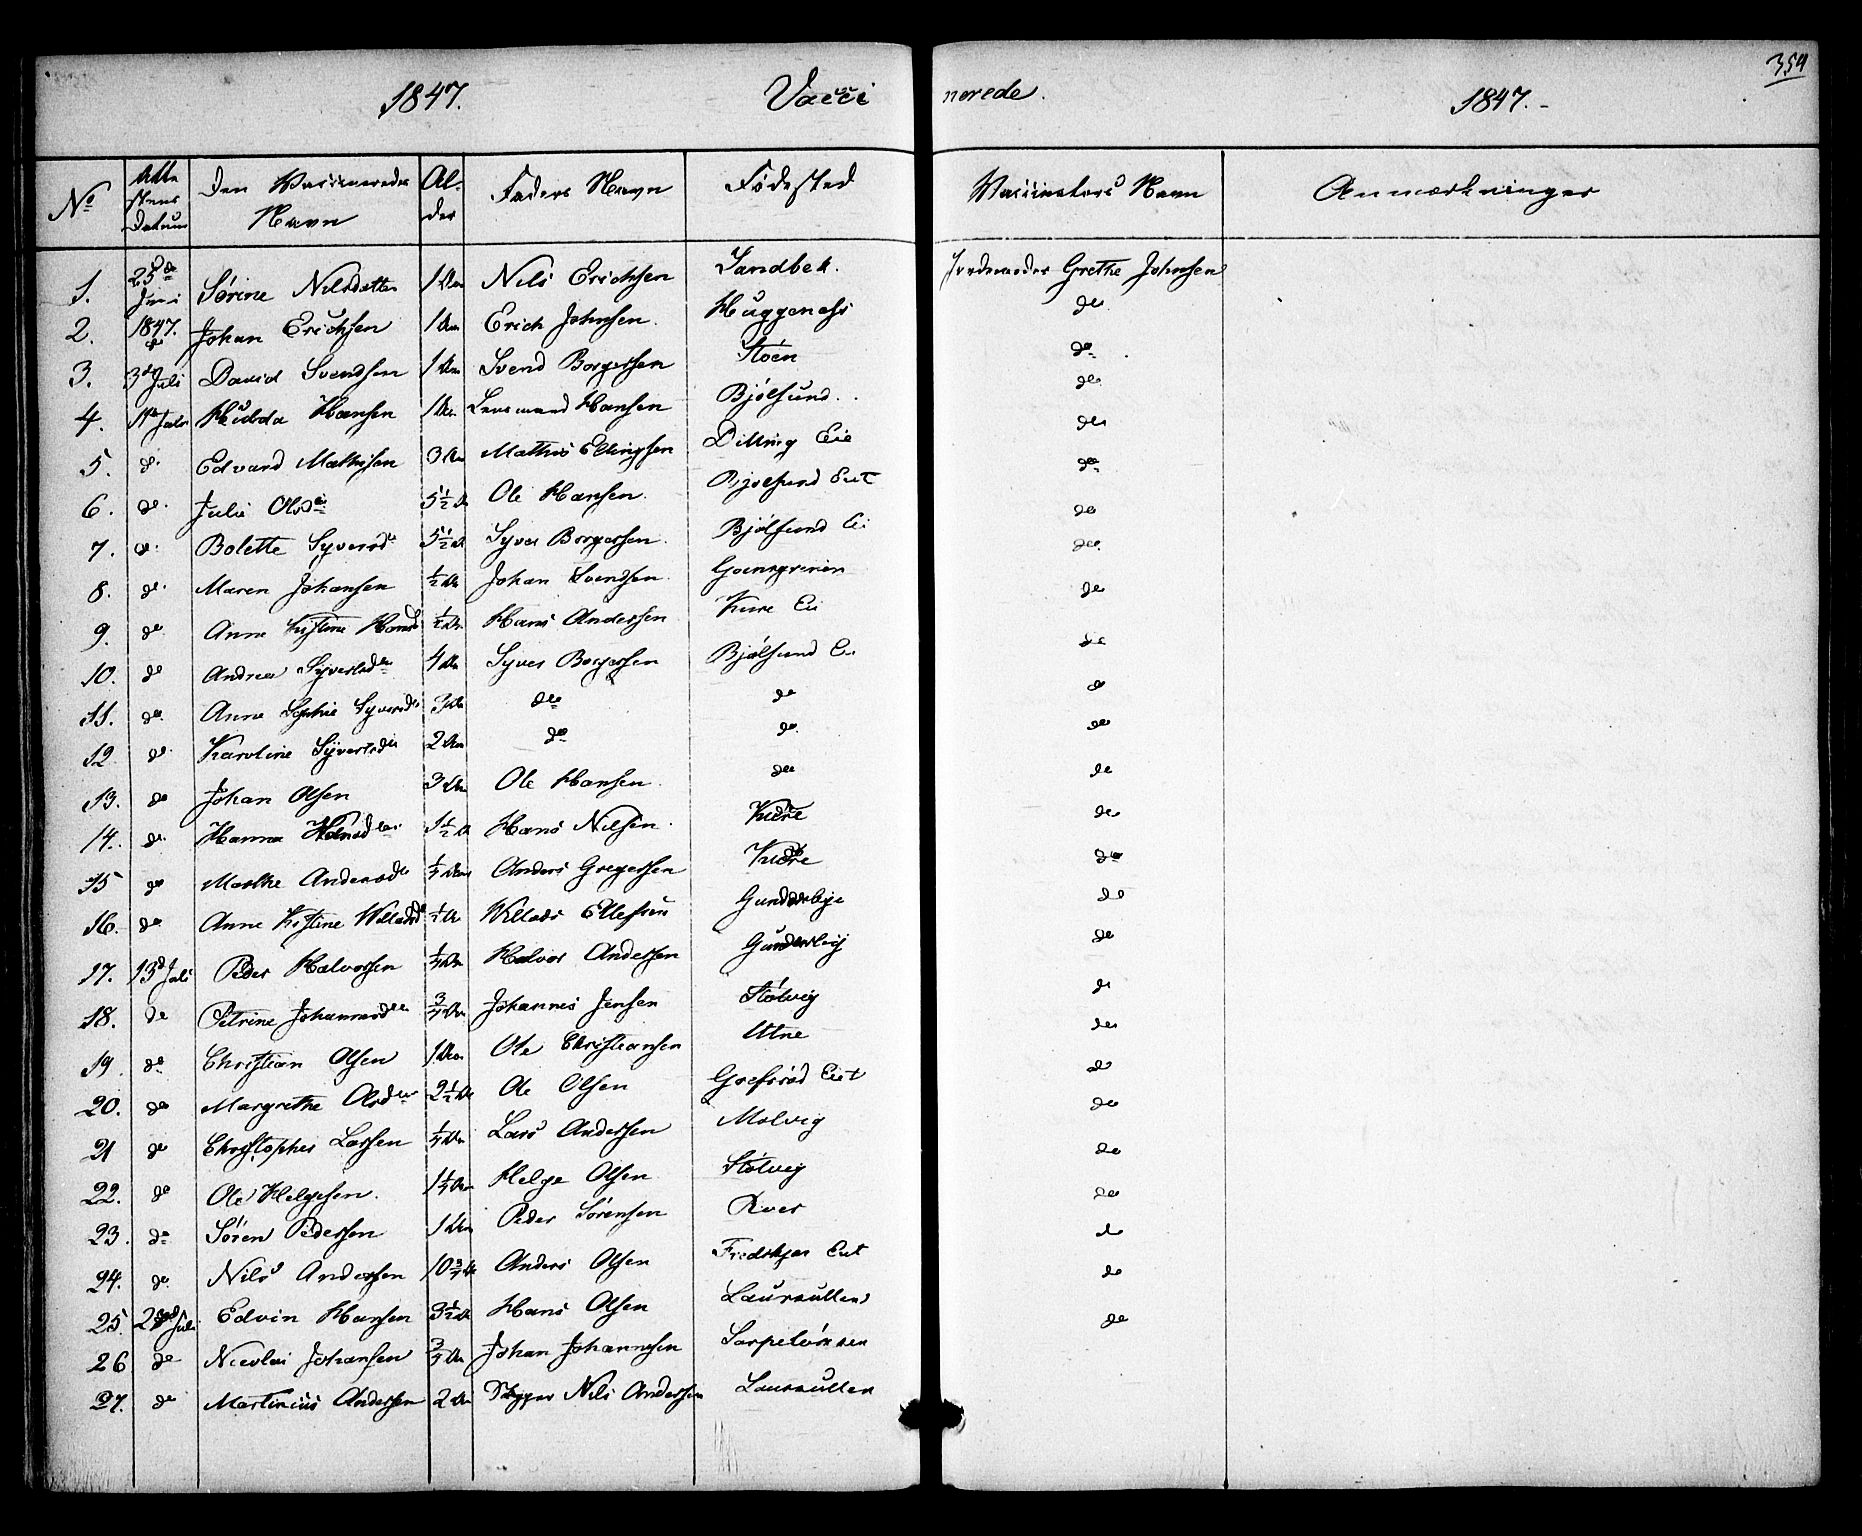 354
1847. Vacci nerede. 1847.-
No Atte stens Datum Den Vaccineredes Navn Al- der Faders Navn Fødested Vaccinators Navn Anmærkninger
1. 25de Juni 1847. Sörine Nilsdatter 1 Aar Nils Erichsen Sandbek. Jordemoder Grethe Johnsen
2. do Johan Erichsen 1 Aar Erich Johnsen. Huggenæs do
3. 3d Juli David Svendsen 1 Aar Svend Borgersen Støen do
4. Hansen 1 Aar Hansen Bjölsund. do
5. do Edvard Mathisen 3 Aar Mathis Ellingsen Dilling Eie do
6. do. Julie Olsdr 5½ A Ole Hansen. Bjölsund Eiet do
7. do. Bolette Syversdr 5½ A Syver Borgersen. Bjölsund Ei do
8. do. Maren Johansen ½ Aar Johan Svendsen. do
9. do Anne Kistine Hansd ½ Aar Hans Andersen Kure Ei do
10. do Andrea Syversdr 4 Aar Syver Borgersen Bjölsund Ei do
11. do Anne Sophie Syversdr 3 Aar do do do
12 do. Karoline Syversdr 2 Aar do do do
13. do Johan Olsen 3 Aar Ole Hansen. do do
14. do. Hanna Hansdr 1½ A Hans Nilsen. Kure do
15 do Marthe Andersdr ¼ Aar Anders Gregersen Kure do
16. do Anne Kistine Willadsdr ¼ A Willads Ellefsen Gunderbye do
17. 13d Juli Peder Halvorsen ¼ Aar Halvor Andersen Gunderbij do
18. do Petrine Johannesdr ¾ Aar Johannes Jensen Stølvig do
19. do Christian Olsen 1 Aar Ole Christiansen Utne do
20. do Margrethe Olsdr 2½ A Ole Olsen Grefsröd Eiet do
21 do Christopher Larsen ¼ Aar Lars Andersen Molvig do
22. do Ole Helgesen. 1¼ Aar Helge Olsen Stølvig do
23. do Sören Pedersen 1 Aar Peder Sörensen Rver do
24. do Nils Andersen 10¾ A Anders Olsen Fredskjær Eiet do
25. Juli Edvin Hansen 3½ A Hans Olsen Laurkullen do
26 do Nicolai Johansen ¾ Aar Johan Johannesen do
27. do Martinius Andersen 2 Aar Skipper Nils Andersen Laurkullen